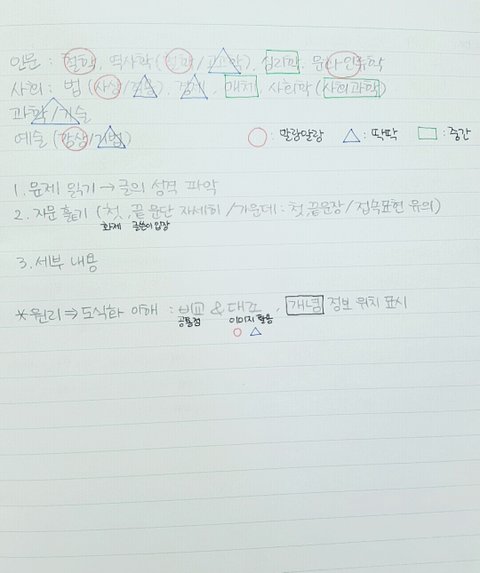 인문 : 철학, 역사학 (철학/과학), 심리학, 문화인류학
사회 : 법 (사상/기술), 경제, 정치, 사회학(사회과학)
과학/기술
예술 (감상/기법)
○ : 말랑말랑 △ : 딱딱 □ : 중간
1. 문제 읽기 → 글의 성격 파악
2. 지문 훑기 (첫, 끝 문단 자세히 / 가운데 : 첫,끝문장/접속표현 유의)
화제 글쓴이 입장
3. 세부 내용
* 원리 ⇒ 도식화 이해 : 비교 & 대조, 개념 정보 위치 표시
공통점 이미지 활용
○ △